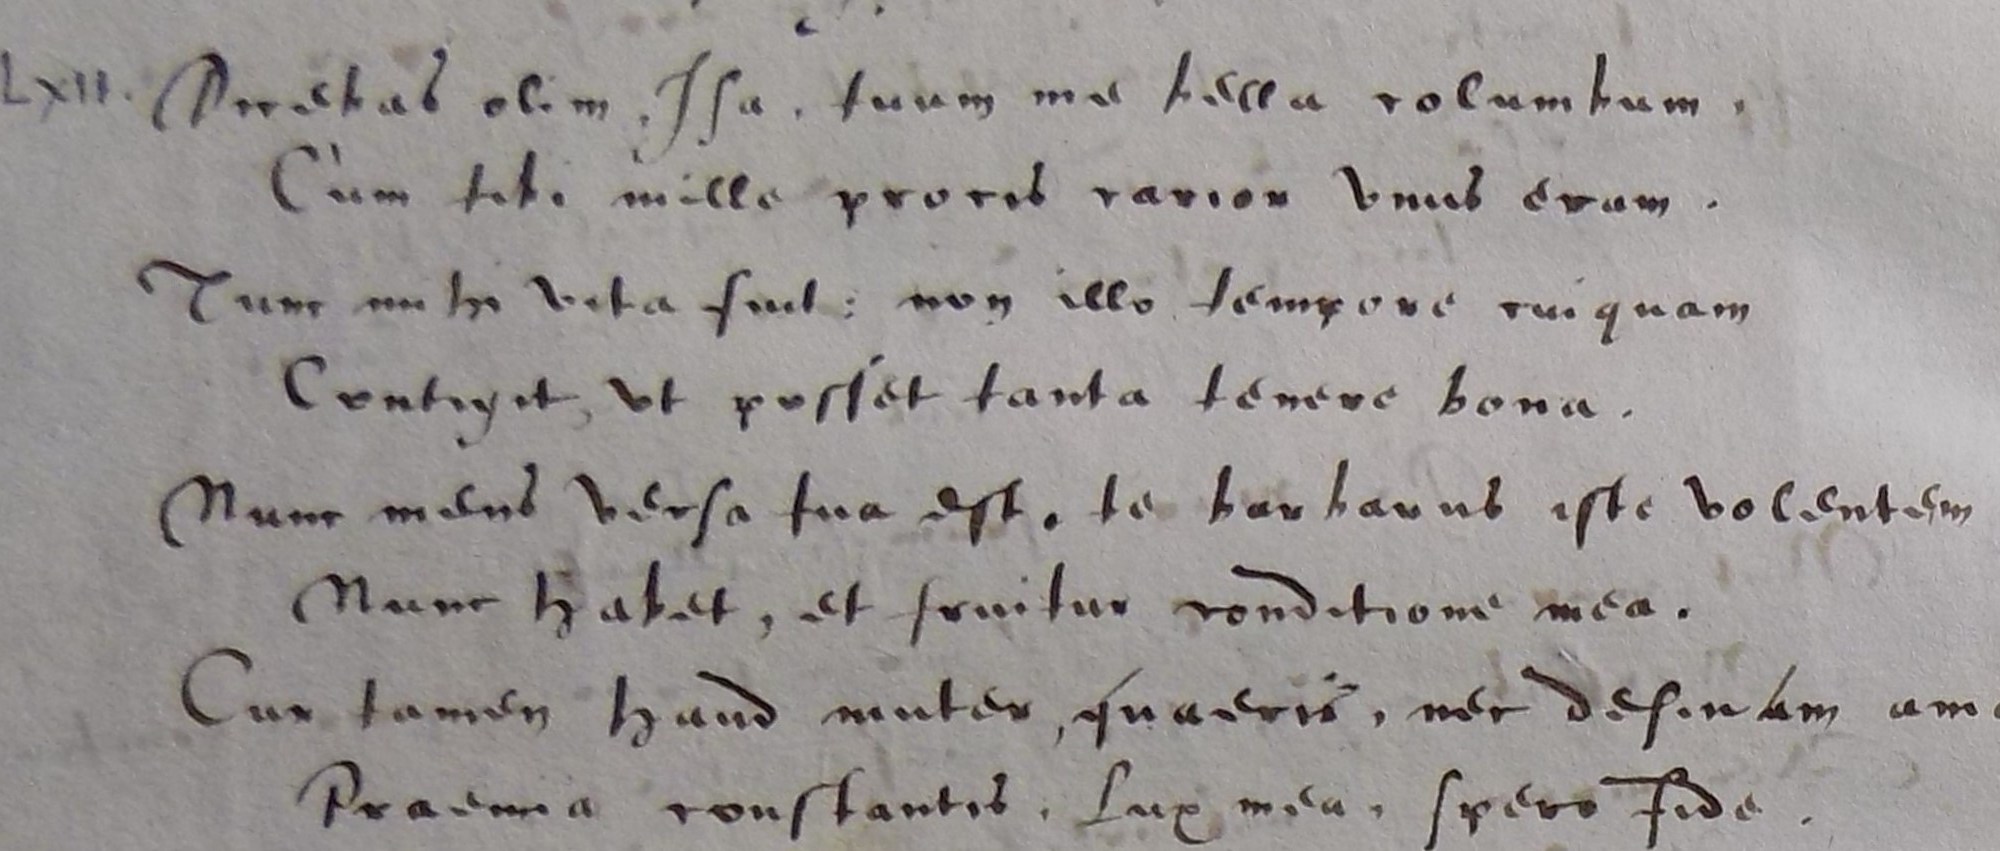 LXII. Dicebas olim, Isa, tuum me bella columbum,
Cum tibi mille procis carior vnus eram.
Tunc mihi vita fuit: non illo tempore cuiquam
Contigit, vt posset tanta tenere bona.
Nunc mens versa tua est, te barbarus iste volentem
Nunc habet, et fruitur conditione mea.
Cur tamen haud muter, quaeris, nec desinam
Praemia constantis, Lux mea, spero fide.